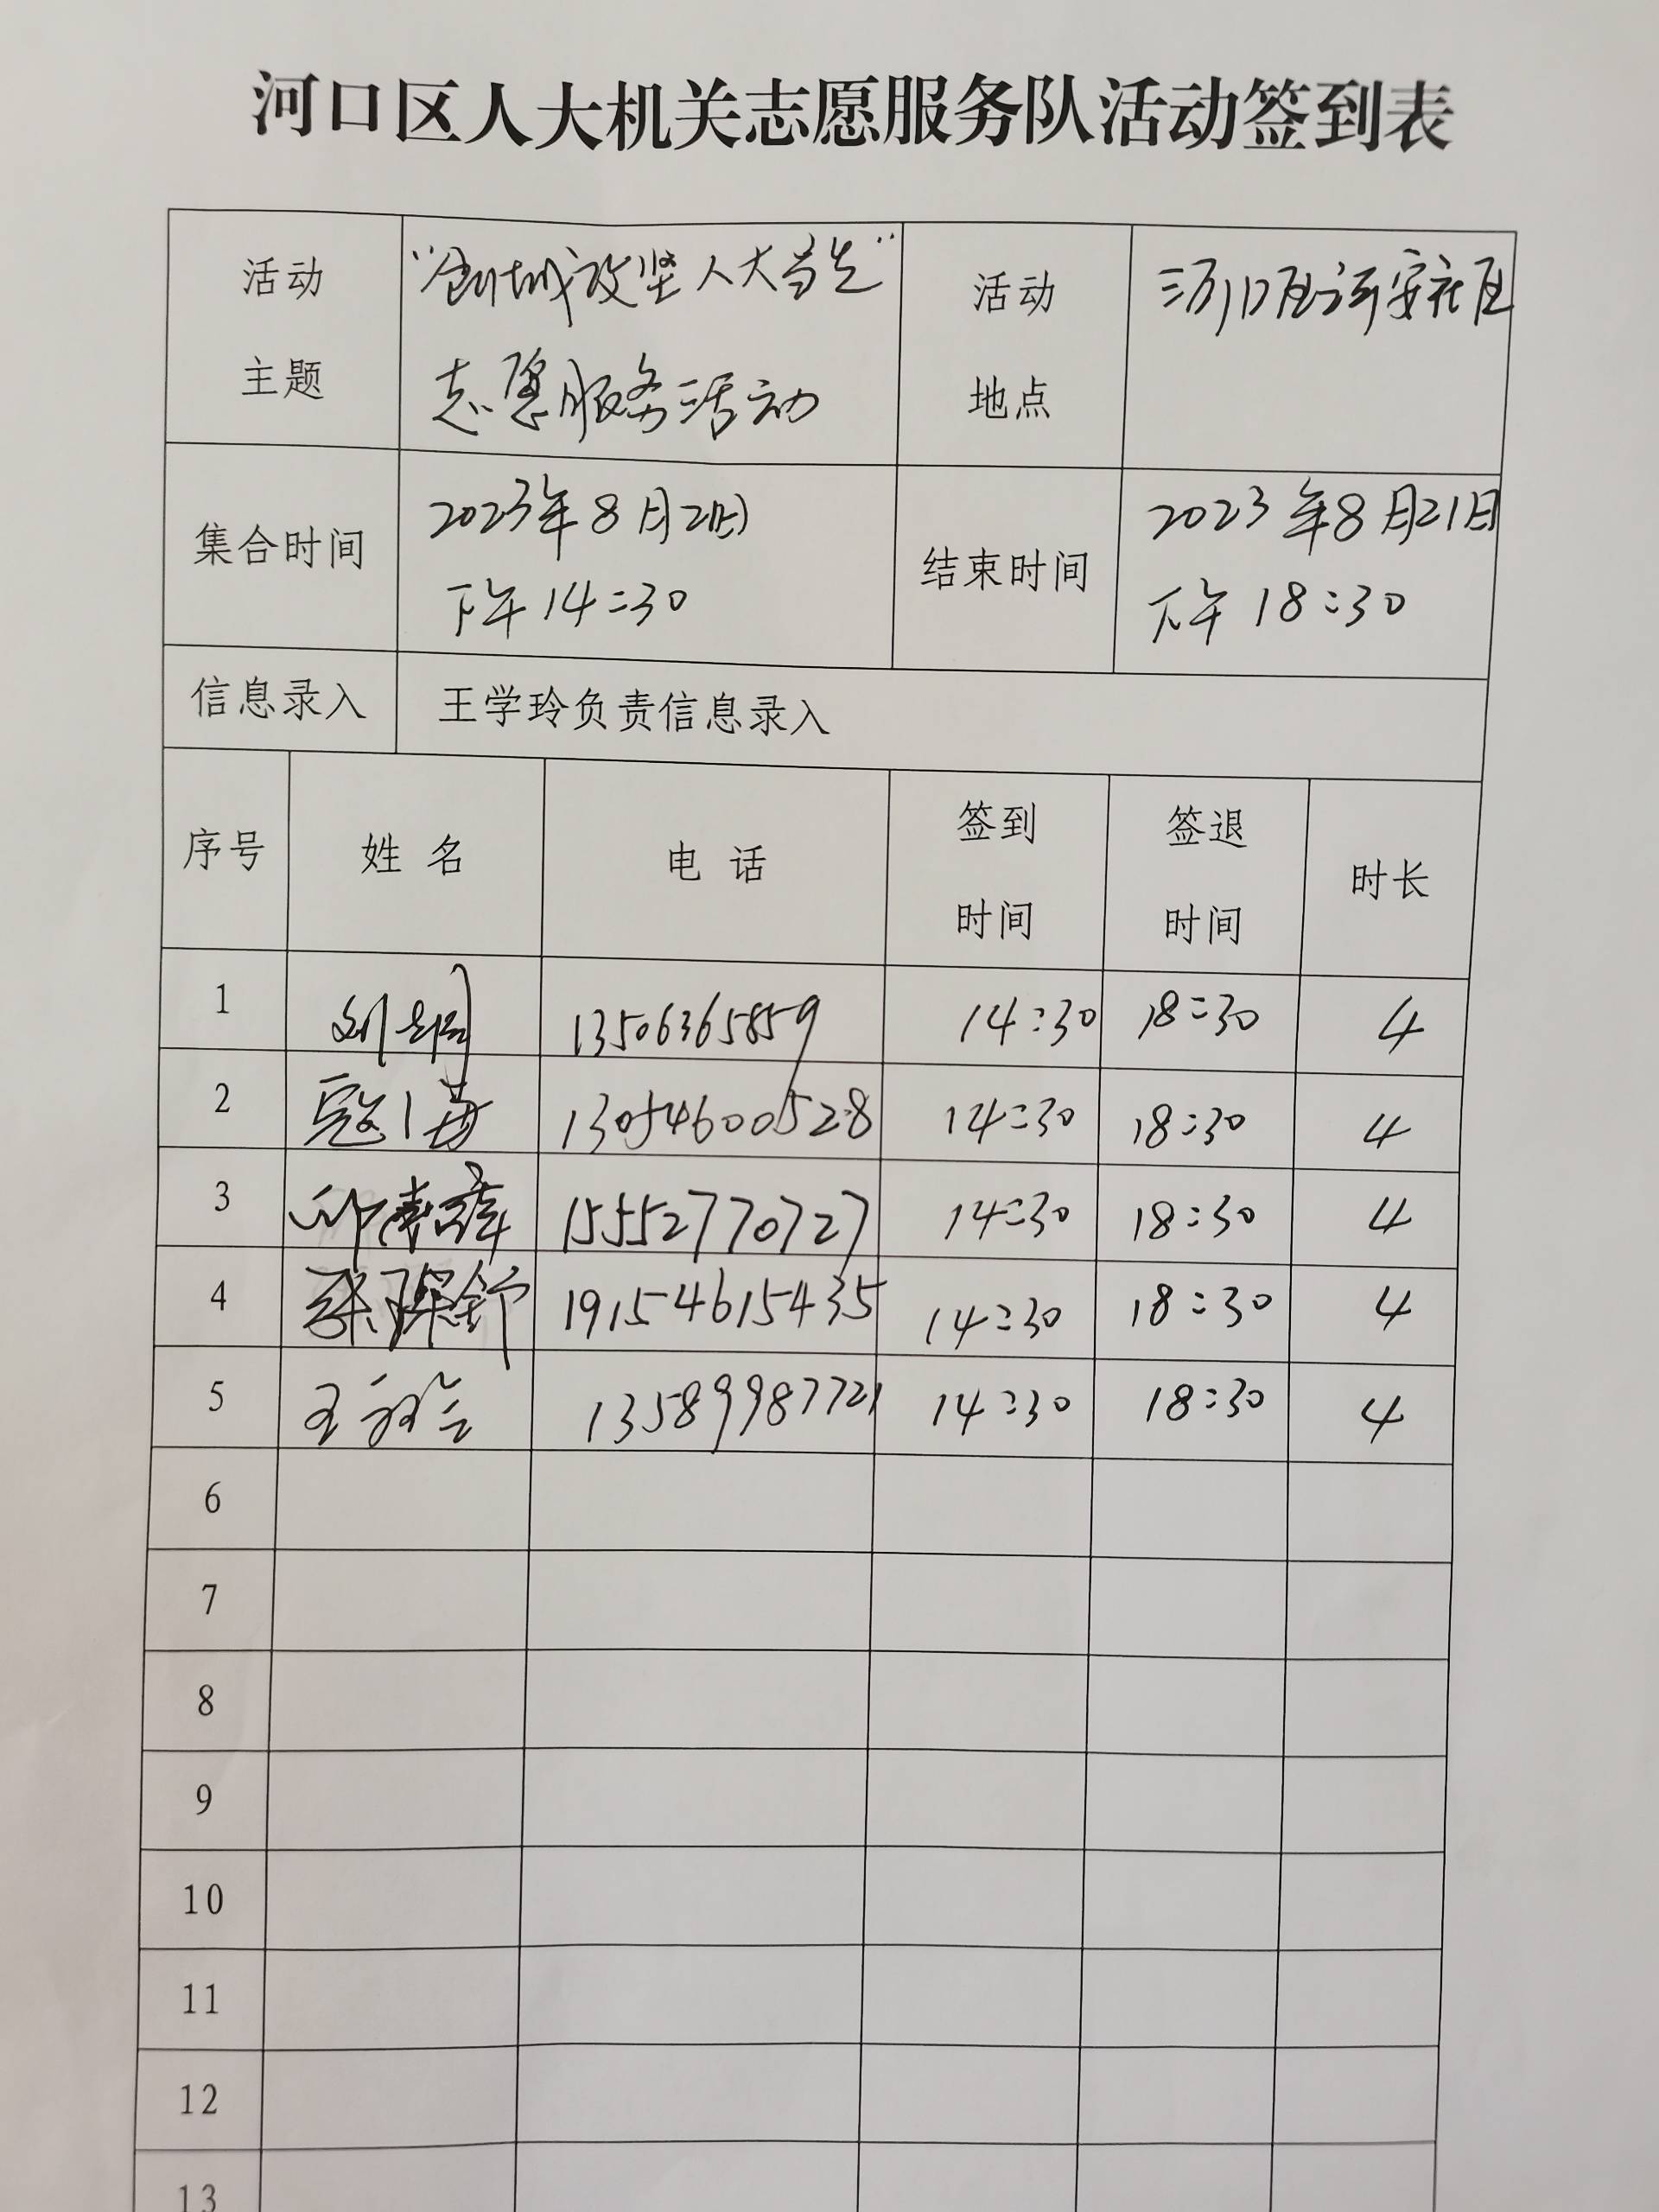 河口区人大机关志愿服务队活动签到表
活动主题 “创城攻坚人大当先” 活动地点 河口区河安社区
志愿服务活动
集合时间 2023年8月21日 结束时间 2023年8月21日
下午14:30 下午18:30
信息录入 王学玲负责信息录入
序号 姓名 电话 签到时间 签退时间 时长
1 13506365859 14:30 18:30 4
2 寇海 13054600528 14:30 18:30 4
3 15552770727 14:30 18:30 4
4 19154615435 14:30 18:30 4
5 13589987721 14:30 18:30 4
6
7
8
9
10
11
12
13